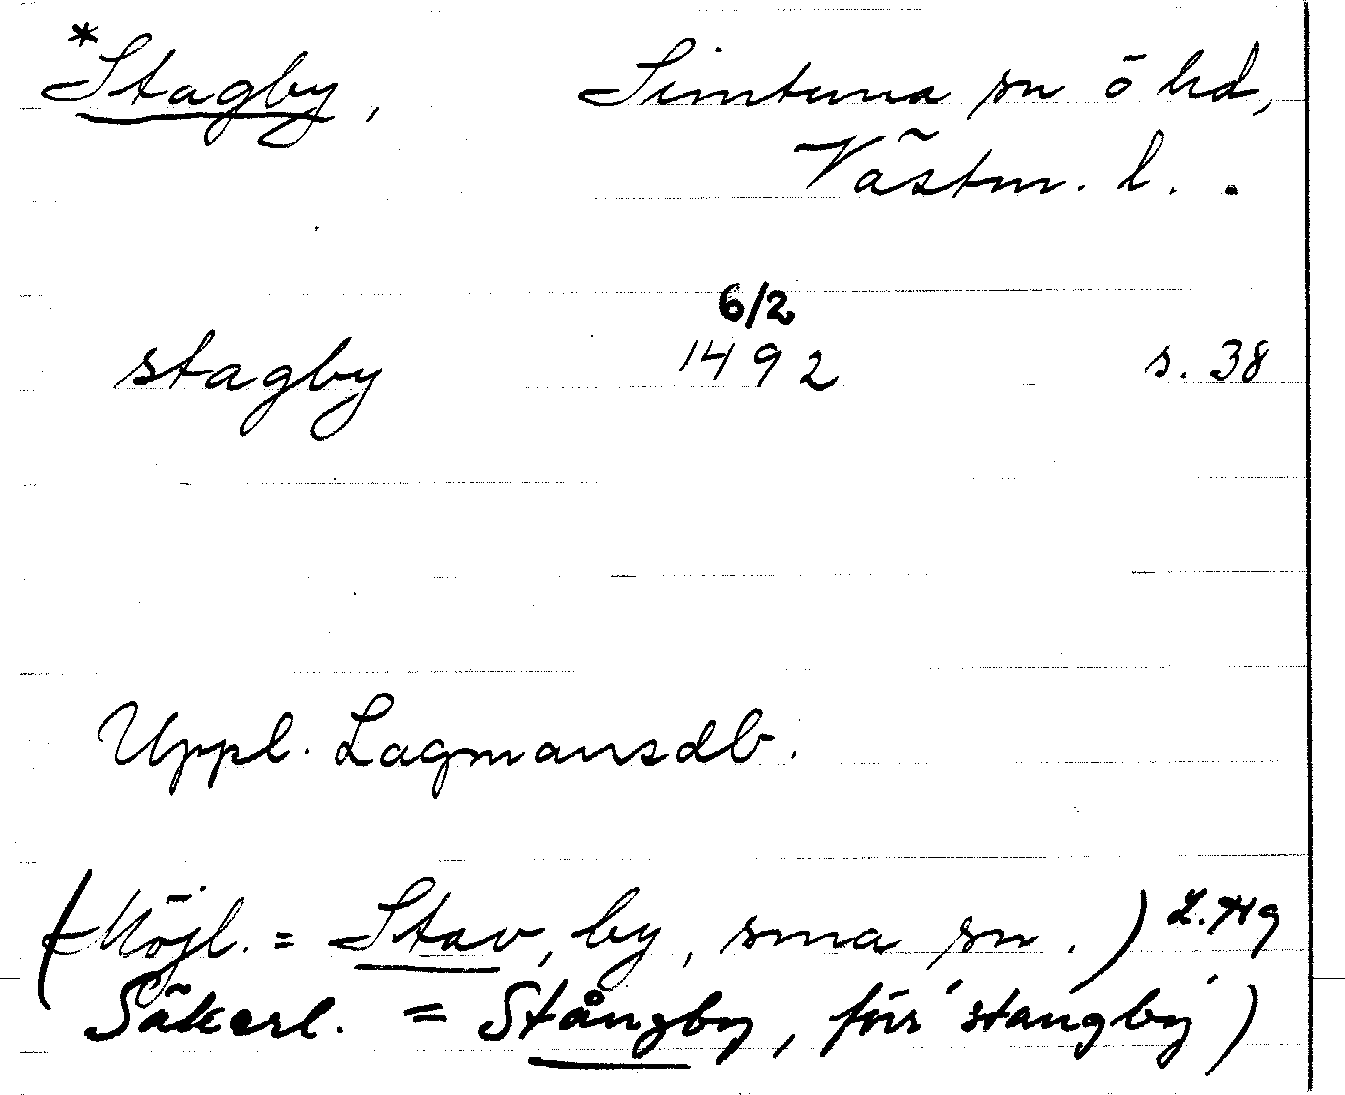 *Stagby, Simtuna sn ö hd,
Västm. l.
6/2
stagby 1492 s. 38
Uppl. Lagmansdb.
(Möjl. = Stav, by, sma sn.) L. Hg
Säkerl. = Stångby, förr 'stangby')